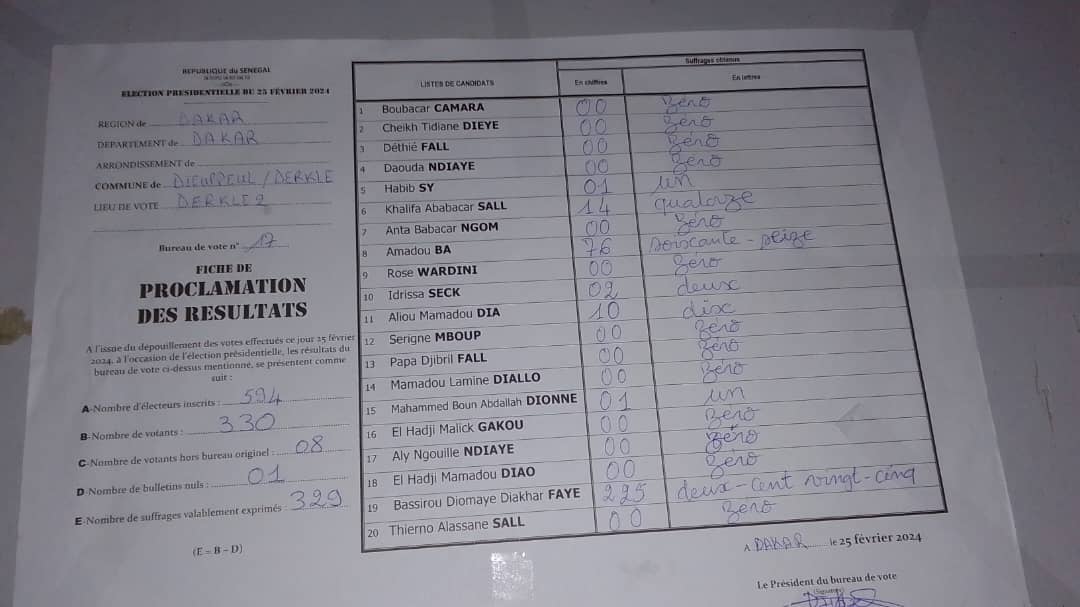 REPUBLIQUE du SENEGAL
ELECTION PRESIDENTIELLE DU 25 FÉVRIER 2024
REGION de DAKAR
DEPARTEMENT de DAKAR
ARRONDISSEMENT de
COMMUNE de DIEUPPEUL/DERKLE
LIEU DE VOTE DERKLE 2
Bureau de vote n° 17
FICHE DE
PROCLAMATION
DES RESULTATS
A l'issue du dépouillement des votes effectués ce jour 25 février
2024, à l'occasion de l'élection présidentielle, les résultats du
bureau de vote ci-dessus mentionné, se présentent comme
suit :
A-Nombre d'électeurs inscrits : 594
B-Nombre de votants : 330
C-Nombre de votants hors bureau originel : 08
D-Nombre de bulletins nuls : 01
E-Nombre de suffrages valablement exprimés : 329
(E = B – D)
LISTES DE CANDIDATS Suffrages obtenus
En chiffres En lettres
1 Boubacar CAMARA 00 Zéro
2 Cheikh Tidiane DIEYE 00 Zéro
3 Déthié FALL 00 Zéro
4 Daouda NDIAYE 00 Zéro
5 Habib SY 01 un
6 Khalifa Ababacar SALL 14 quatorze
7 Anta Babacar NGOM 00 Zéro
8 Amadou BA 76 soixante-seize
9 Rose WARDINI 00 Zéro
10 Idrissa SECK 02 deux
11 Aliou Mamadou DIA 10 dix
12 Serigne MBOUP 00 Zéro
13 Papa Djibril FALL 00 Zéro
14 Mamadou Lamine DIALLO 00 Zéro
15 Mahammed Boun Abdallah DIONNE 01 un
16 El Hadji Malick GAKOU 00 Zéro
17 Aly Ngouille NDIAYE 00 Zéro
18 El Hadji Mamadou DIAO 00 Zéro
19 Bassirou Diomaye Diakhar FAYE 225 deux-cent vingt-cinq
20 Thierno Alassane SALL 00 Zéro
A DAKAR le 25 février 2024
Le Président du bureau de vote
(Signature)